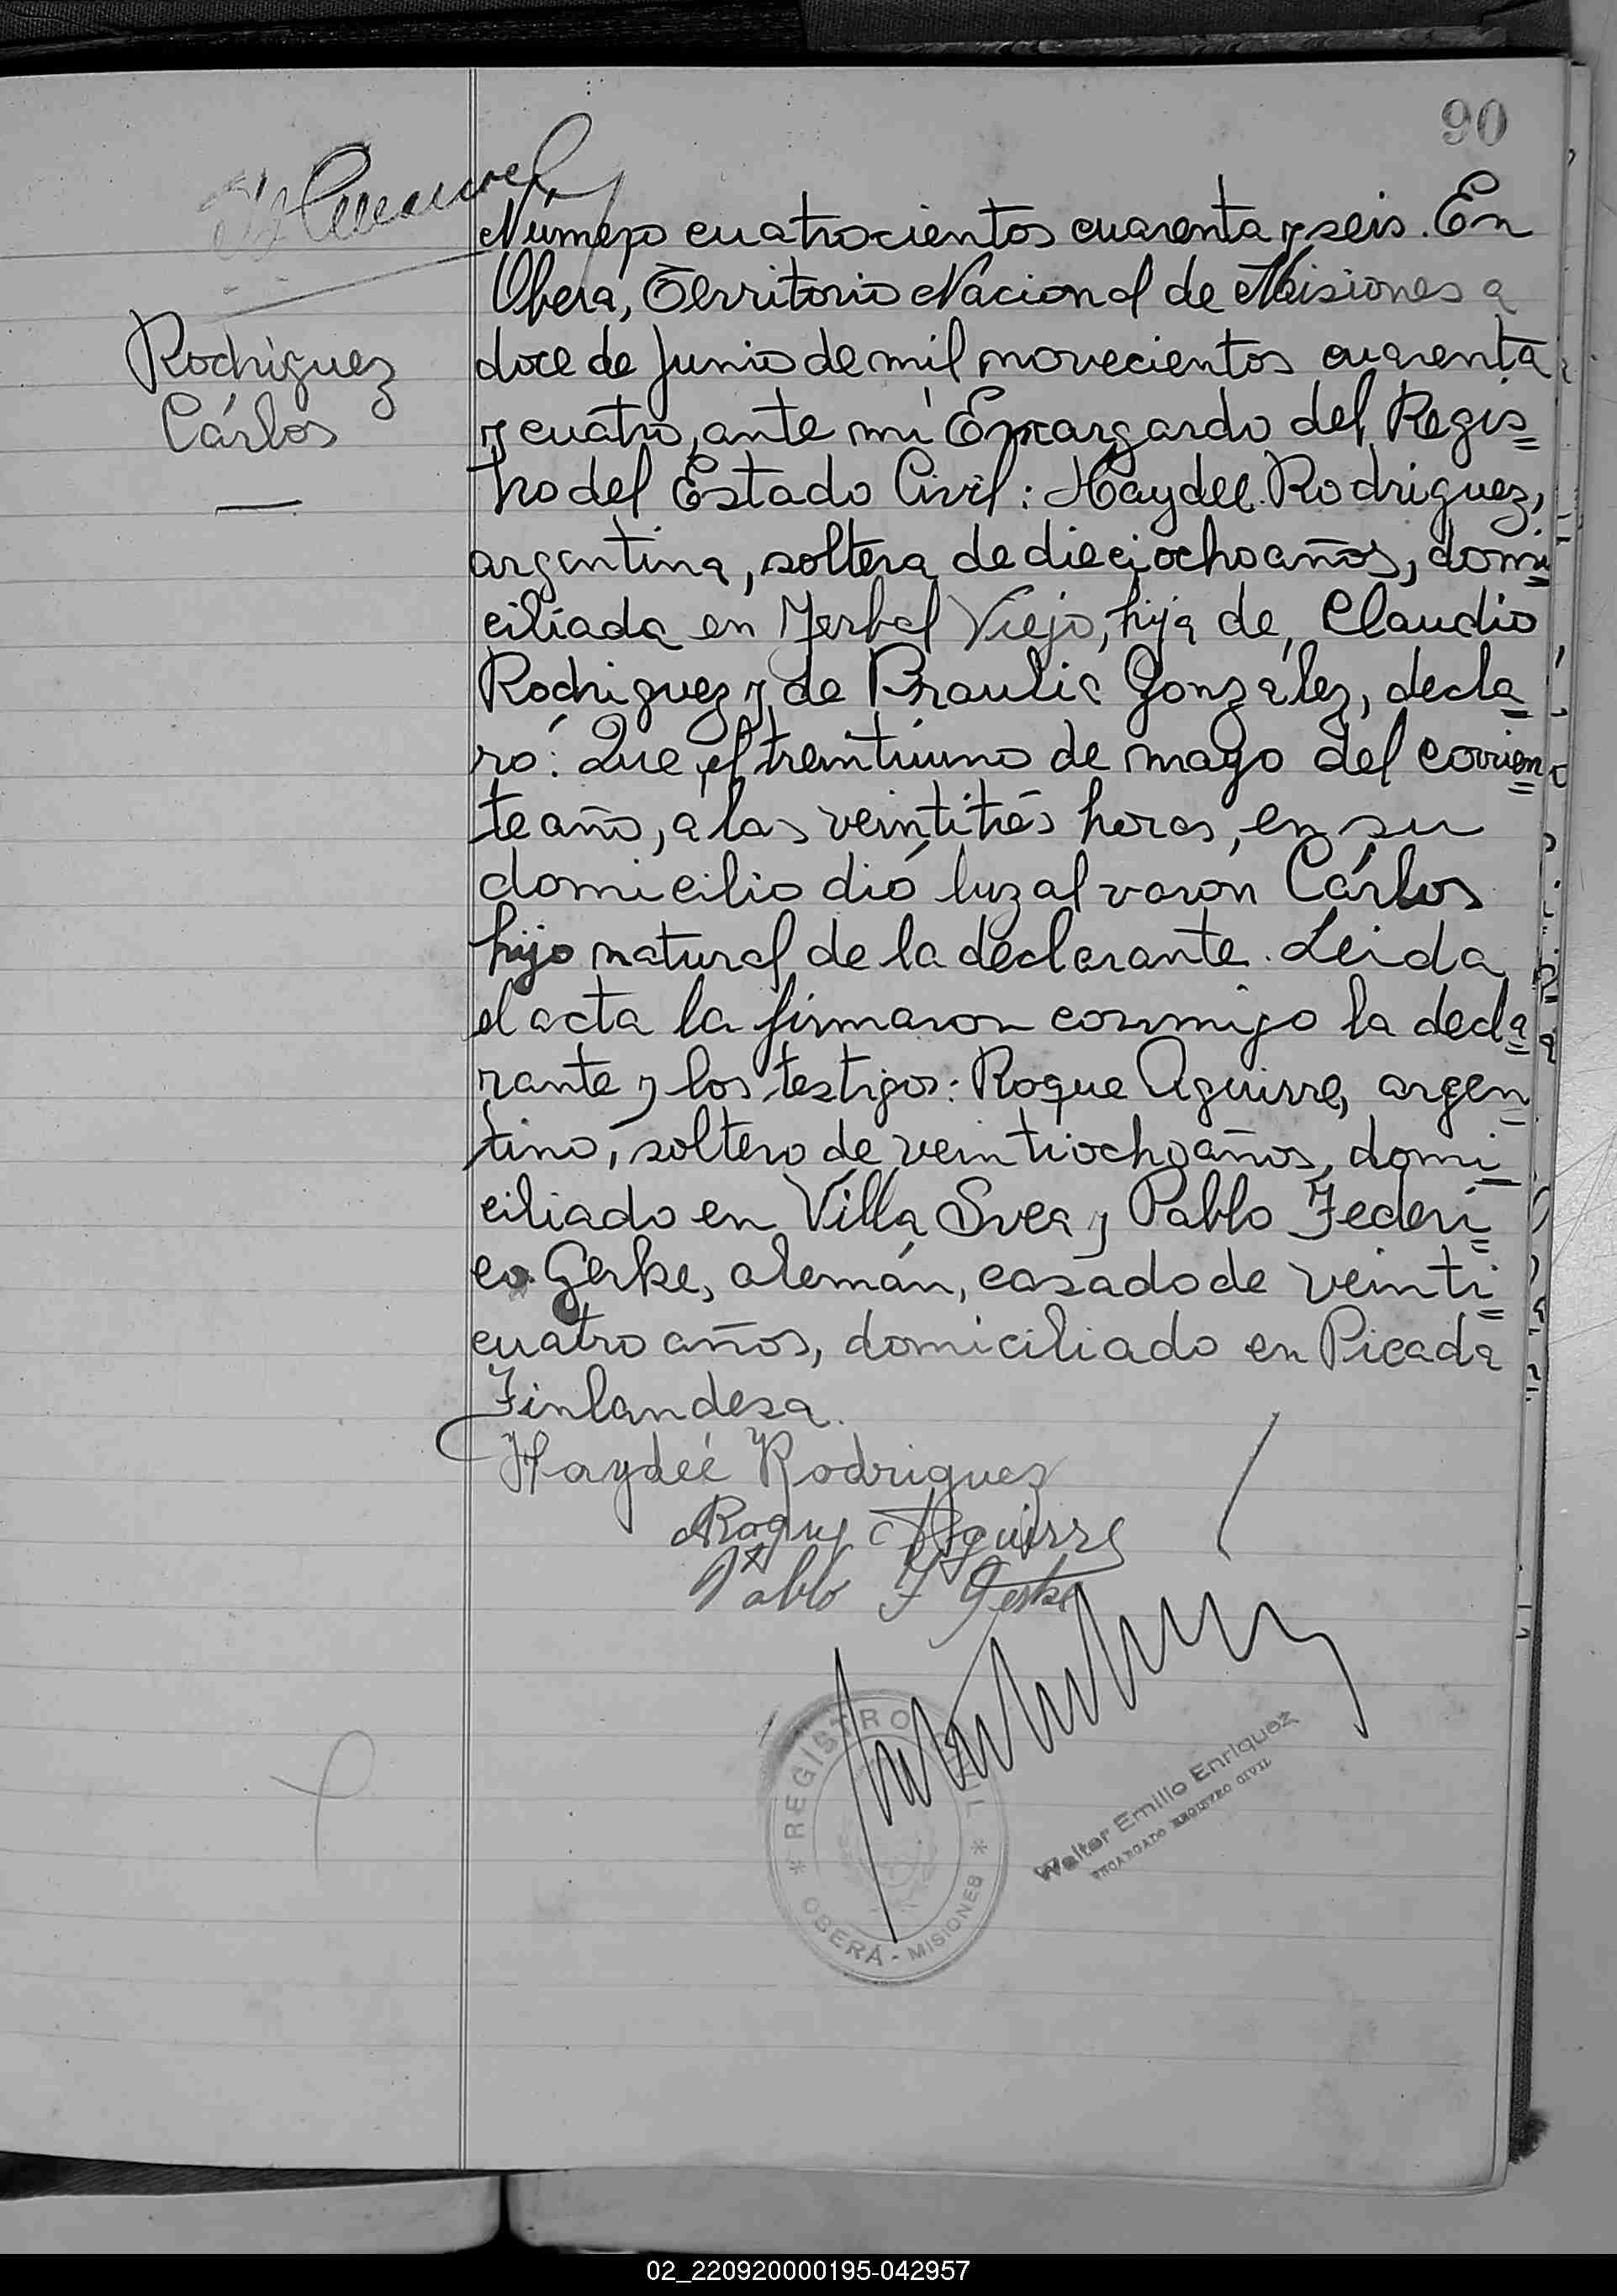 90
Rodriguez
Cárlos
Número cuatrocientos cuarenta y seis. En
Oberá, Territorio Nacional de Misiones a
doce de Junio de mil novecientos cuarenta
y cuatro, ante mi Encargardo del Regis=
tro del Estado Civil: Haydeé Rodriguez,
argentina, soltera de dieciocho años, domi=
ciliada en Yerbal Viejo, hija de Claudio
Rodriguez y de Braulia González, decla=
ró: Que el treintiuno de mayo del corrien=
te año, a las veintitrés horas, en su
domicilio dió luz al varon Cárlos
hijo natural de la declarante. Leida
el acta la firmaron conmigo la decla=
rante y los testigos: Roque Aguirre, argen=
tino, soltero de veintiocho años, domi=
ciliado en Villa Svea y Pablo Federi=
co Gerke, alemán, casado de veinti=
cuatro años, domiciliado en Picada
Finlandesa.
Haydeé Rodriguez
Roque Aguirre
Pablo F Gerke
REGISTRO CIVIL
OBERÁ - MISIONES
Walter Emilio Enriquez
ENCARGADO REGISTRO CIVIL
02_220920000195-042957